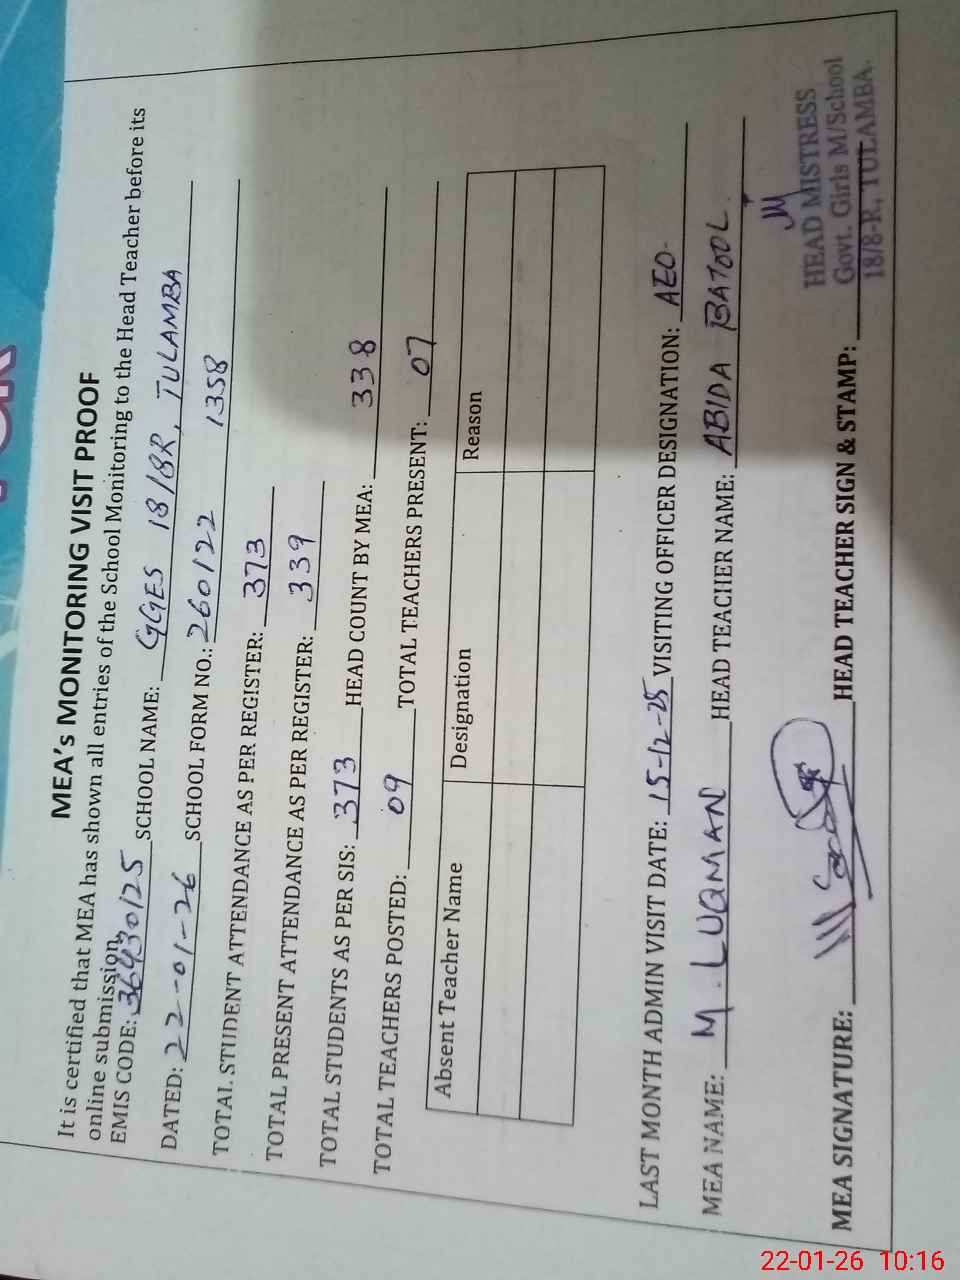 MEA's MONITORING VISIT PROOF
It is certified that MEA has shown all entries of the School Monitoring to the Head Teacher before its
online submission.
EMIS CODE: 36430125 SCHOOL NAME: GGES 18/8R, TULAMBA
DATED: 22-01-26 SCHOOL FORM NO.: 260122 1358
TOTAL STUDENT ATTENDANCE AS PER REGISTER: 373
TOTAL PRESENT ATTENDANCE AS PER REGISTER: 339
TOTAL STUDENTS AS PER SIS: 373 HEAD COUNT BY MEA: 338
TOTAL TEACHERS POSTED: 09 TOTAL TEACHERS PRESENT: 07
Absent Teacher Name Designation Reason
LAST MONTH ADMIN VISIT DATE: 15-12-25 VISITING OFFICER DESIGNATION: AEO
MEA NAME: M. LUQMAN HEAD TEACHER NAME: ABIDA BATOOL.
MEA SIGNATURE: HEAD TEACHER SIGN & STAMP:
HEAD MISTRESS
Govt. Girls M/School
18/8-R, TULAMBA.
22-01-26 10:16